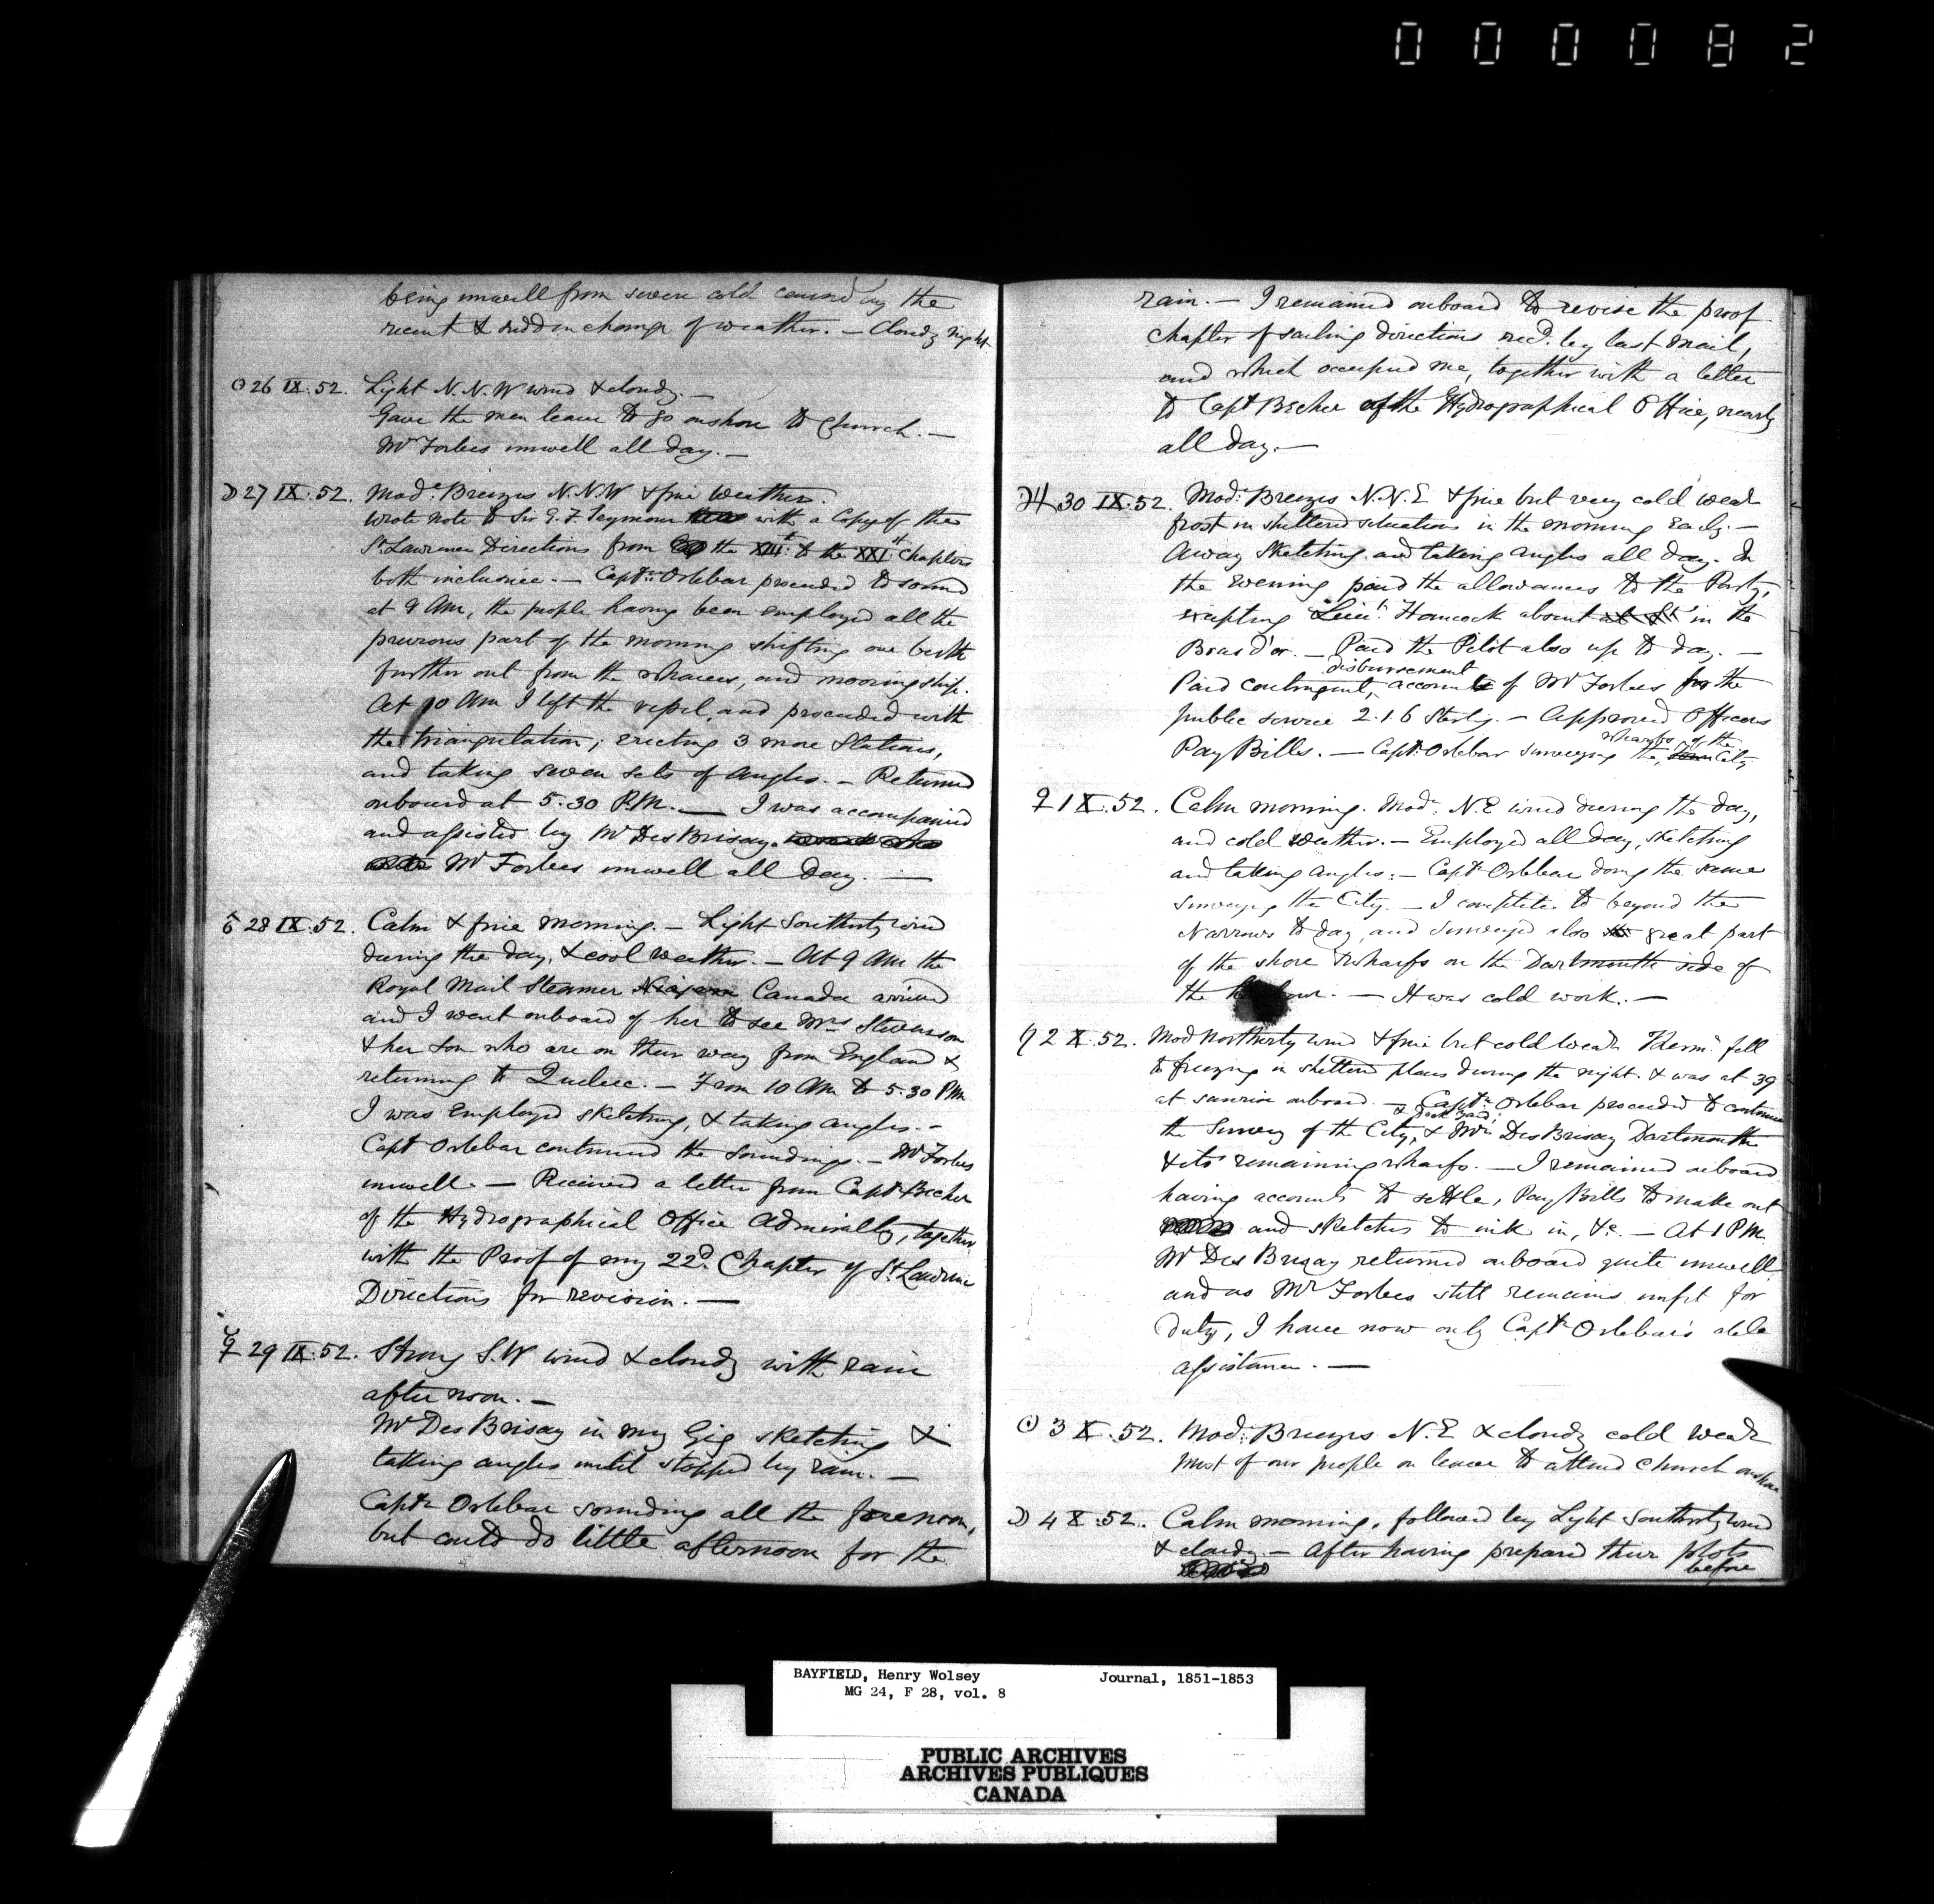 0 0 0 0 8 2
being unwell from severe cold caused by the
recent & sudden change of weather. — Cloudy night
☉ 26 IX. 52. Light N.N.W wind & cloudy. —
Gave the men leave to go onshore to Church. —
Mr Forbes unwell all day. —
☽ 27 IX. 52. Mode. Breezes N.N.W & fine weather.
Wrote note to Sir G. F. Seymour with a Copy of the
St. Lawrence Directions from the XIIth. to the XXIst. Chapters
both inclusive. — Captn. Orlebar proceeded to sound
at 9 AM, the people having been employed all the
previous part of the morning shifting our berth
further out from the wharves, and mooring ship.
At 10 AM I left the vessel, and proceeded with
the triangulation; erecting 3 more Stations,
and taking seven sets of angles. — Returned
onboard at 5.30 P.M. — I was accompanied
and assisted by Mr DesBrisay.
Mr Forbes unwell all day. —
♂ 28 IX. 52. Calm & fine morning. — Light Southerly wind
during the day, & cool weather. — At 9 AM the
Royal Mail Steamer Niagara Canada arrived
and I went onboard of her to see Mrs Stevenson
& her Son who are on their way from England &
returning to Quebec. — From 10 AM to 5.30 PM
I was Employed sketching, & taking angles. —
Capt Orlebar continued the Soundings. — Mr Forbes
unwell — Received a letter from Capt Becher
of the Hydrographical Office Admiralty, together
with the Proof of my 22d. Chapter of St Lawrence
Directions for revision. —
☿ 29 IX. 52. Strong S.W wind & cloudy with rain
after noon. —
Mr DesBrisay in my Gig sketching &
taking angles until stopped by rain. —
Captn Orlebar sounding all the forenoon,
but could do little afternoon for the
rain. — I remained onboard to revise the proof
Chapter of sailing directions recd. by last mail,
and which occupied me, together with a letter
to Capt Becher of the Hydrographical Office, nearly
all day. —
♃ 30 IX. 52. Mod: Breezes N.N.E & fine but very cold weath
frost in sheltered situations in the morning early. —
Away Sketching and taking angles all day. In
the evening paid the allowances to the Party,
excepting Lieut. Hancock absent at St in the
Bras d'or. — Paid the Pilot also up to day. —
disbursement
Paid contingent, account of Mr Forbes for the
public service 2.16 Sterlg. — Approved Officers
wharfs of the
Pay Bills. — Capt: Orlebar surveying the, town City
♀ 1 X. 52. Calm morning. Mod: N.E wind during the day,
and cold weather. — Employed all day, sketching
and taking angles; — Captn Orlebar doing the same
surveying the City. — I completed to beyond the
Narrows to day, and Surveyed also great part
of the shore & wharfs on the Dartmouth side of
the harbour. — It was cold work. —
♄ 2 X. 52. Mod Northerly wind & fine but cold weath Therm. fell
to freezing in sheltered places during the night. & was at 39
at sunrise onboard. — Captn. Orlebar proceeded to continue
& Dock Yard.
the Survey of the City, & Mr. DesBrisay Dartmouth
& its remaining wharfs. — I remained onboard
having accounts to settle, Pay Bills to make out
and sketches to ink in, &c. — At 1 PM.
Mr Des Brisay returned onboard quite unwell
and as Mr Forbes still remains unfit for
duty, I have now only Captn Orlebar's able
assistance. —
☉ 3 X. 52. Mod: Breezes N.E & cloudy cold weath
Most of our people on leave to attend Church onshore.
☽ 4 X. 52. Calm morning, followed by Light Southerly wind
& cloudy — After having prepared their plots
before
BAYFIELD, Henry Wolsey Journal, 1851-1853
MG 24, F 28, vol. 8
PUBLIC ARCHIVES
ARCHIVES PUBLIQUES
CANADA